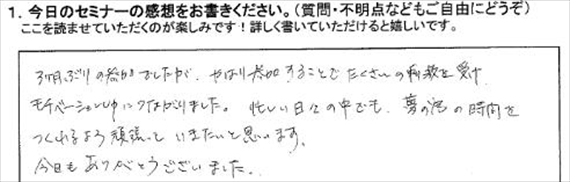 1. 今日のセミナーの感想をお書きください。（質問・不明点などもご自由にどうぞ）
ここを読ませていただくのが楽しみです！詳しく書いていただけると嬉しいです。
3ヶ月ぶりの参加でしたが、やはり参加することでたくさんの刺激を受け
モチベーションUPにつながりました。忙しい日々の中でも、夢の為の時間を
つくれるよう頑張っていきたいと思います。
今日もありがとうございました。